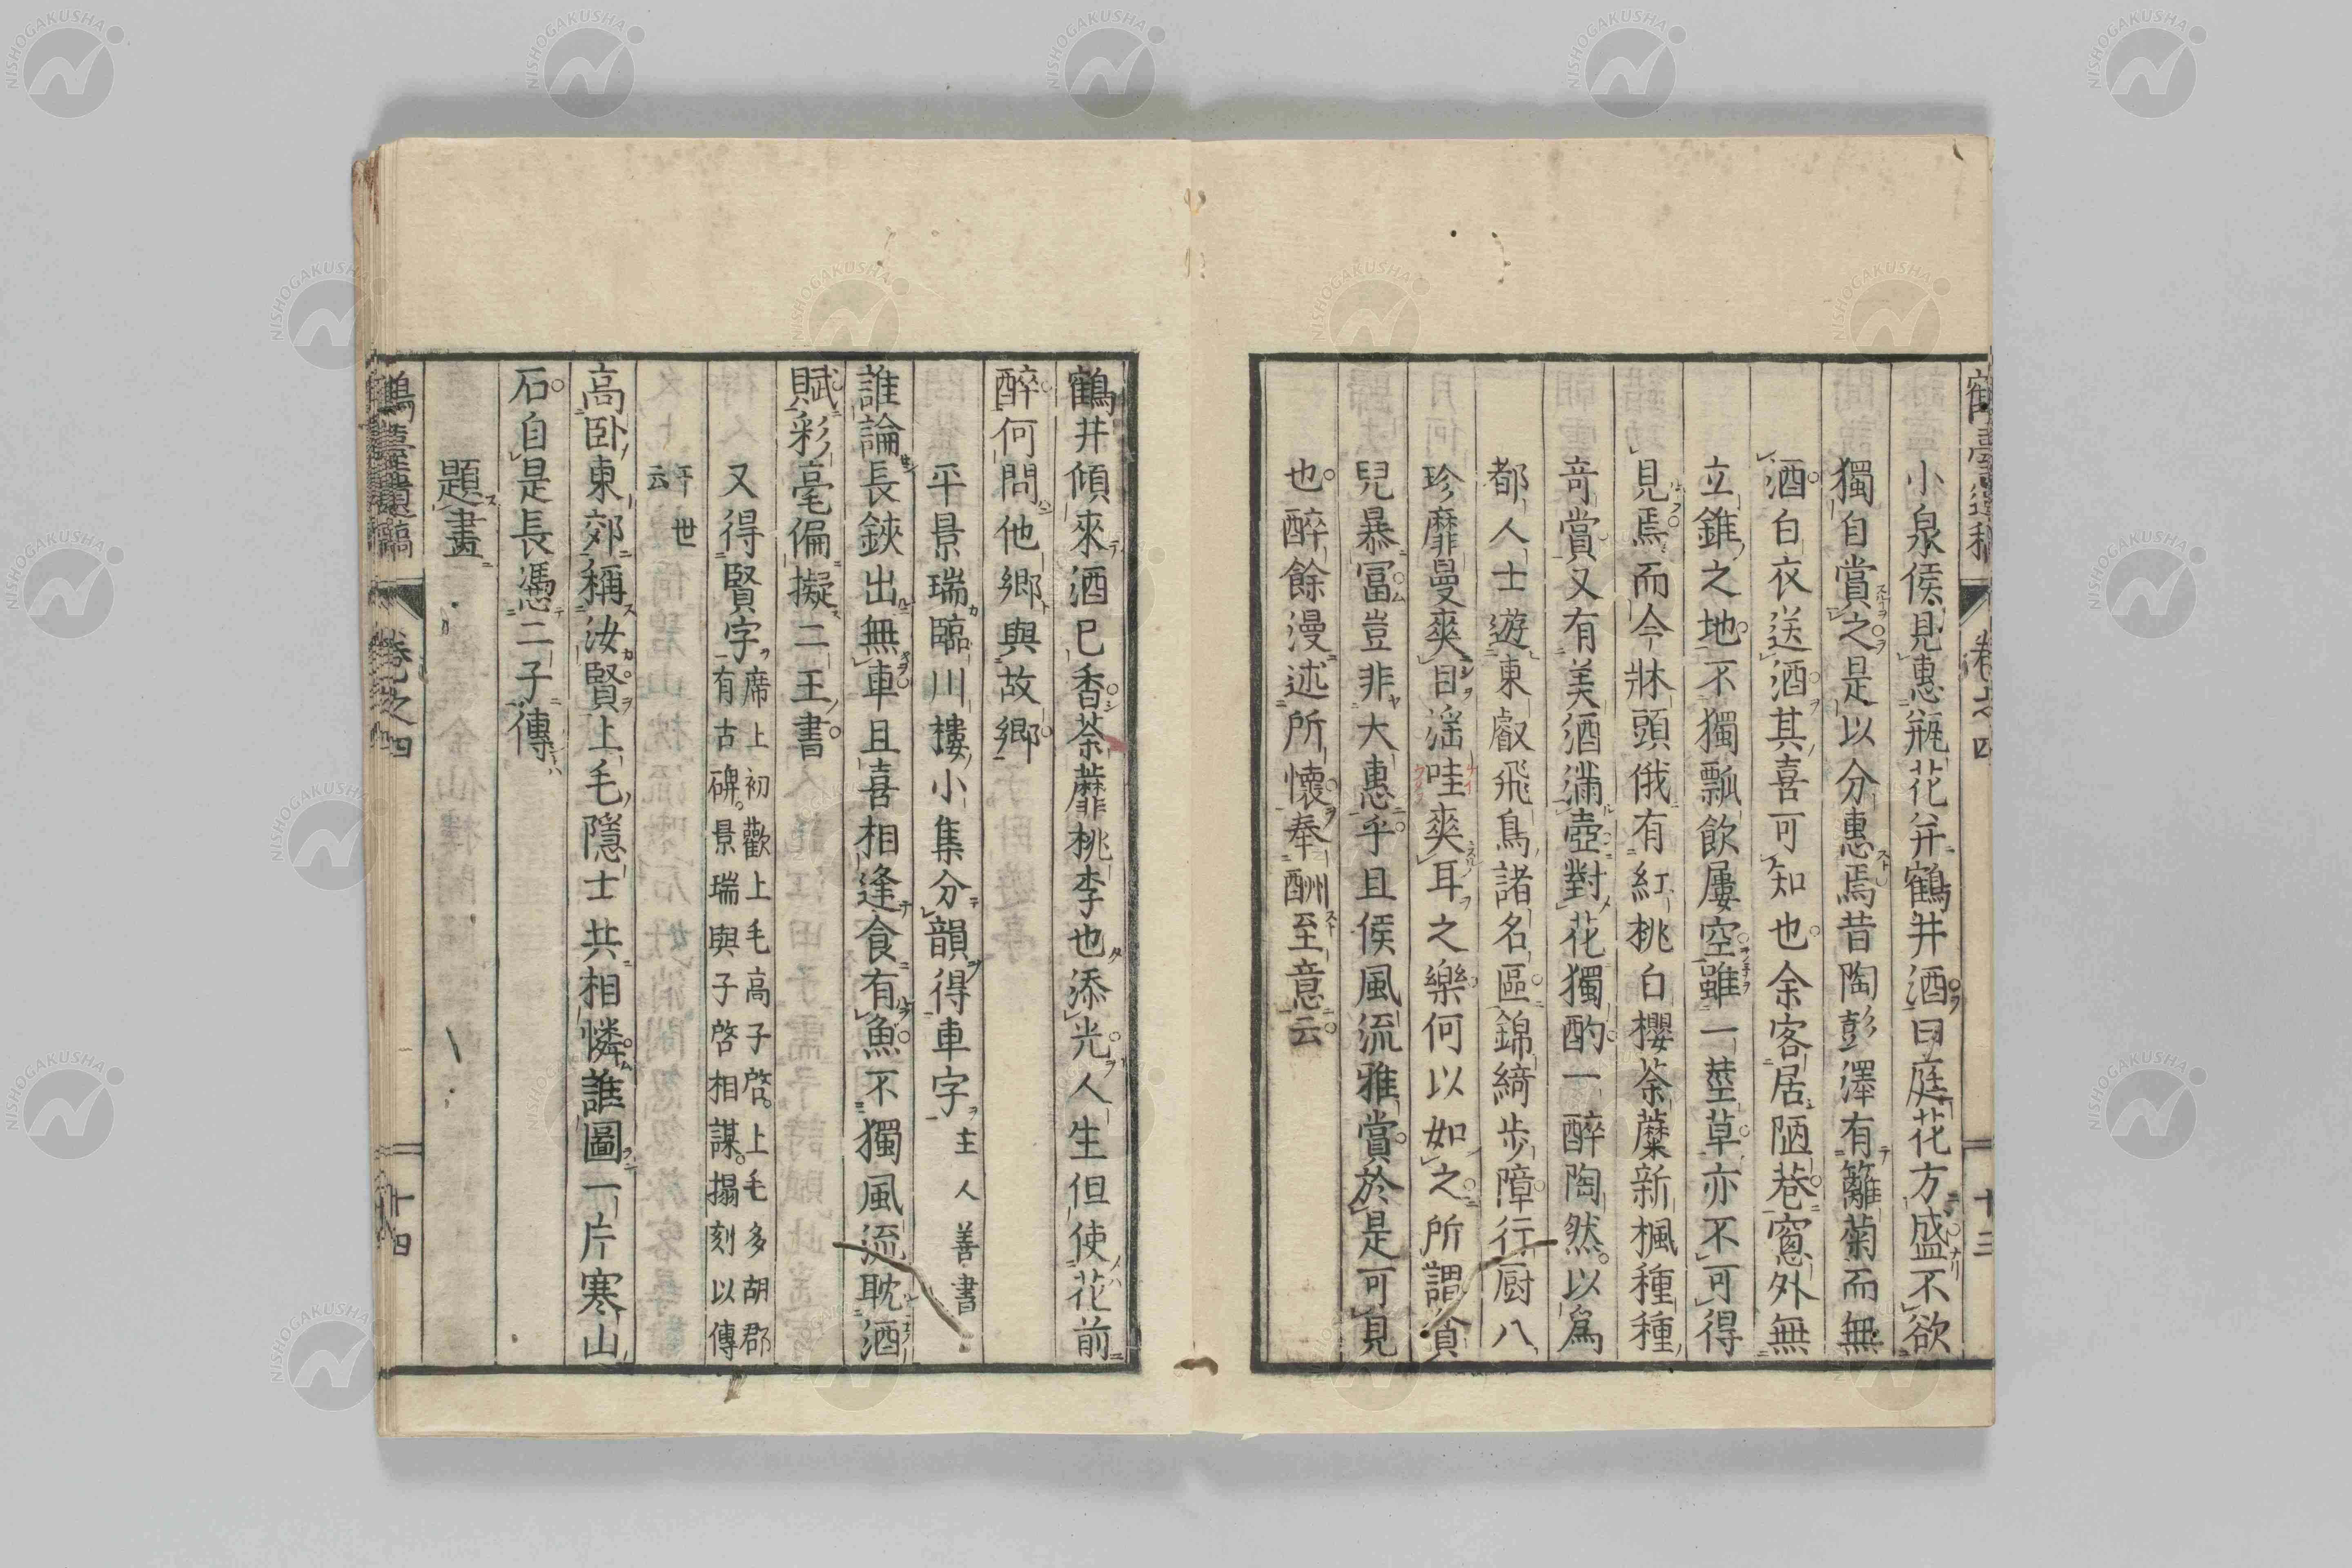 小泉侯見惠瓶花并鶴井酒曰庭花方盛不欲
獨自賞之是以分惠焉昔陶彭澤有籬菊而無
酒白衣送酒其喜可知也余客居陋巷窓外無
立錐之地不獨瓢飲屢空雖一莖草亦不可得
見焉而今牀頭俄有紅桃白櫻荼蘼新楓種種
奇賞又有美酒滿壺對花獨酌一醉陶然以爲
都人士遊東叡飛鳥諸名區錦綺步障行厨八
珍靡曼爽目淫哇爽耳之樂何以如之所謂貧
兒暴冨豈非大惠乎且侯風流雅賞於是可見
也醉餘漫述所懷奉酬至意云
鶴井傾來酒已香荼蘼桃李也添光人生但使花前
醉何問他鄉與故鄉
平景瑞臨川樓小集分韻得車字主人善書
誰論長鋏出無車且喜相逢食有魚不獨風流耽酒
賦彩毫偏擬二王書
又得賢字席上初歡上毛高子啓上毛多胡郡
有古碑景瑞與子啓相謀搨刻以傳
于世
云
高卧東郊稱汝賢上毛隱士共相憐誰圖一片寒山
石自是長憑二子傳
題畫
鶴臺遺稿 卷之四 十四